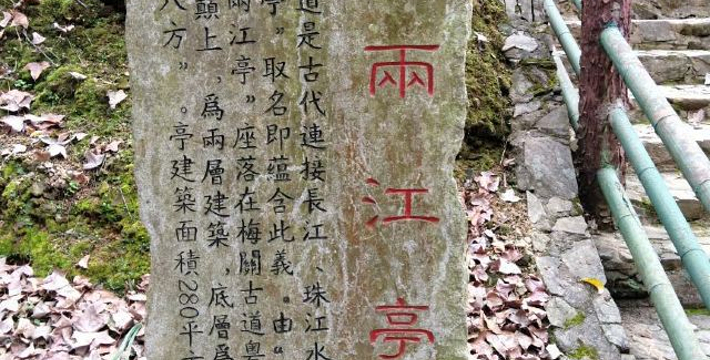 兩江亭
道是古代連接長江、珠江水
亭”取名即蘊含此義。由“
兩江亭”座落在梅關古道粵
顛上，爲兩層建築，底層爲
八方”。亭建築面積280平方